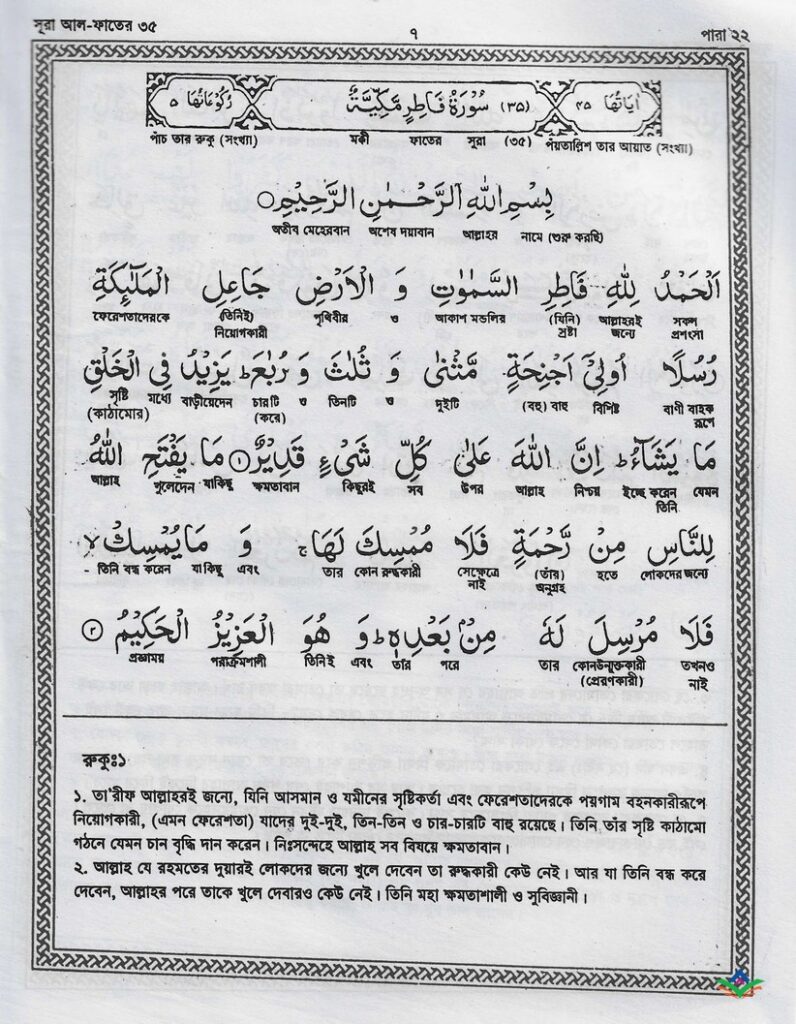 সূরা আল-ফাতের ৩৫ ৭ পারা ২২
اٰيَاتُهَا ٤٥ (٣٥) سُوْرَةُ فَاطِرٍ مَّكِّيَّةٌ رُكُوْعَاتُهَا ٥
পাঁচ তার রুকু (সংখ্যা) মক্কী ফাতের সূরা (৩৫) পঁয়তাল্লিশ তার আয়াত (সংখ্যা)
بِسْمِ اللّٰهِ الرَّحْمٰنِ الرَّحِيْمِ ○
অতীব মেহেরবান অশেষ দয়াবান আল্লাহর নামে (শুরু করছি)
اَلْحَمْدُ لِلّٰهِ فَاطِرِ السَّمٰوٰتِ وَ الْاَرْضِ جَاعِلِ الْمَلٰٓئِكَةِ
ফেরেশতাদেরকে (তিনিই) পৃথিবীর ও আকাশ মন্ডলির (যিনি) আল্লাহরই সকল
নিয়োগকারী স্রষ্টা জন্যে প্রশংসা
رُسُلًا اُولِيْٓ اَجْنِحَةٍ مَّثْنٰى وَ ثُلٰثَ وَ رُبٰعَ ؕ يَزِيْدُ فِي الْخَلْقِ
সৃষ্টি মধ্যে বাড়ীয়েদেন চারটি ও তিনটি ও দুইটি (বহু) বাহু বিশিষ্ট বাণী বাহক
(কাঠামোর) (করে) রূপে
مَا يَشَآءُ ؕ اِنَّ اللّٰهَ عَلٰى كُلِّ شَيْءٍ قَدِيْرٌ ① مَا يَفْتَحِ اللّٰهُ
আল্লাহ খুলেদেন যাকিছু ক্ষমতাবান কিছুরই সব উপর আল্লাহ নিশ্চয় ইচ্ছে করেন যেমন
তিনি
لِلنَّاسِ مِنْ رَّحْمَةٍ فَلَا مُمْسِكَ لَهَا ۚ وَ مَا يُمْسِكْ ۙ
- তিনি বন্ধ করেন যাকিছু এবং তার কোন রুদ্ধকারী সেক্ষেত্রে (তাঁর) হতে লোকদের জন্যে
নাই অনুগ্রহ
فَلَا مُرْسِلَ لَهٗ مِنْۢ بَعْدِهٖ ؕ وَ هُوَ الْعَزِيْزُ الْحَكِيْمُ ②
প্রজ্ঞাময় পরাক্রমশালী তিনিই এবং তাঁর পরে তার কোনউন্মুক্তকারী তখনও
(প্রেরণকারী) নাই
রুকুঃ১
১. তা'রীফ আল্লাহরই জন্যে, যিনি আসমান ও যমীনের সৃষ্টিকর্তা এবং ফেরেশতাদেরকে পয়গাম বহনকারীরূপে
নিয়োগকারী, (এমন ফেরেশতা) যাদের দুই-দুই, তিন-তিন ও চার-চারটি বাহু রয়েছে। তিনি তাঁর সৃষ্টি কাঠামো
গঠনে যেমন চান বৃদ্ধি দান করেন। নিঃসন্দেহে আল্লাহ সব বিষয়ে ক্ষমতাবান।
২. আল্লাহ যে রহমতের দুয়ারই লোকদের জন্যে খুলে দেবেন তা রুদ্ধকারী কেউ নেই। আর যা তিনি বন্ধ করে
দেবেন, আল্লাহর পরে তাকে খুলে দেবারও কেউ নেই। তিনি মহা ক্ষমতাশালী ও সুবিজ্ঞানী।